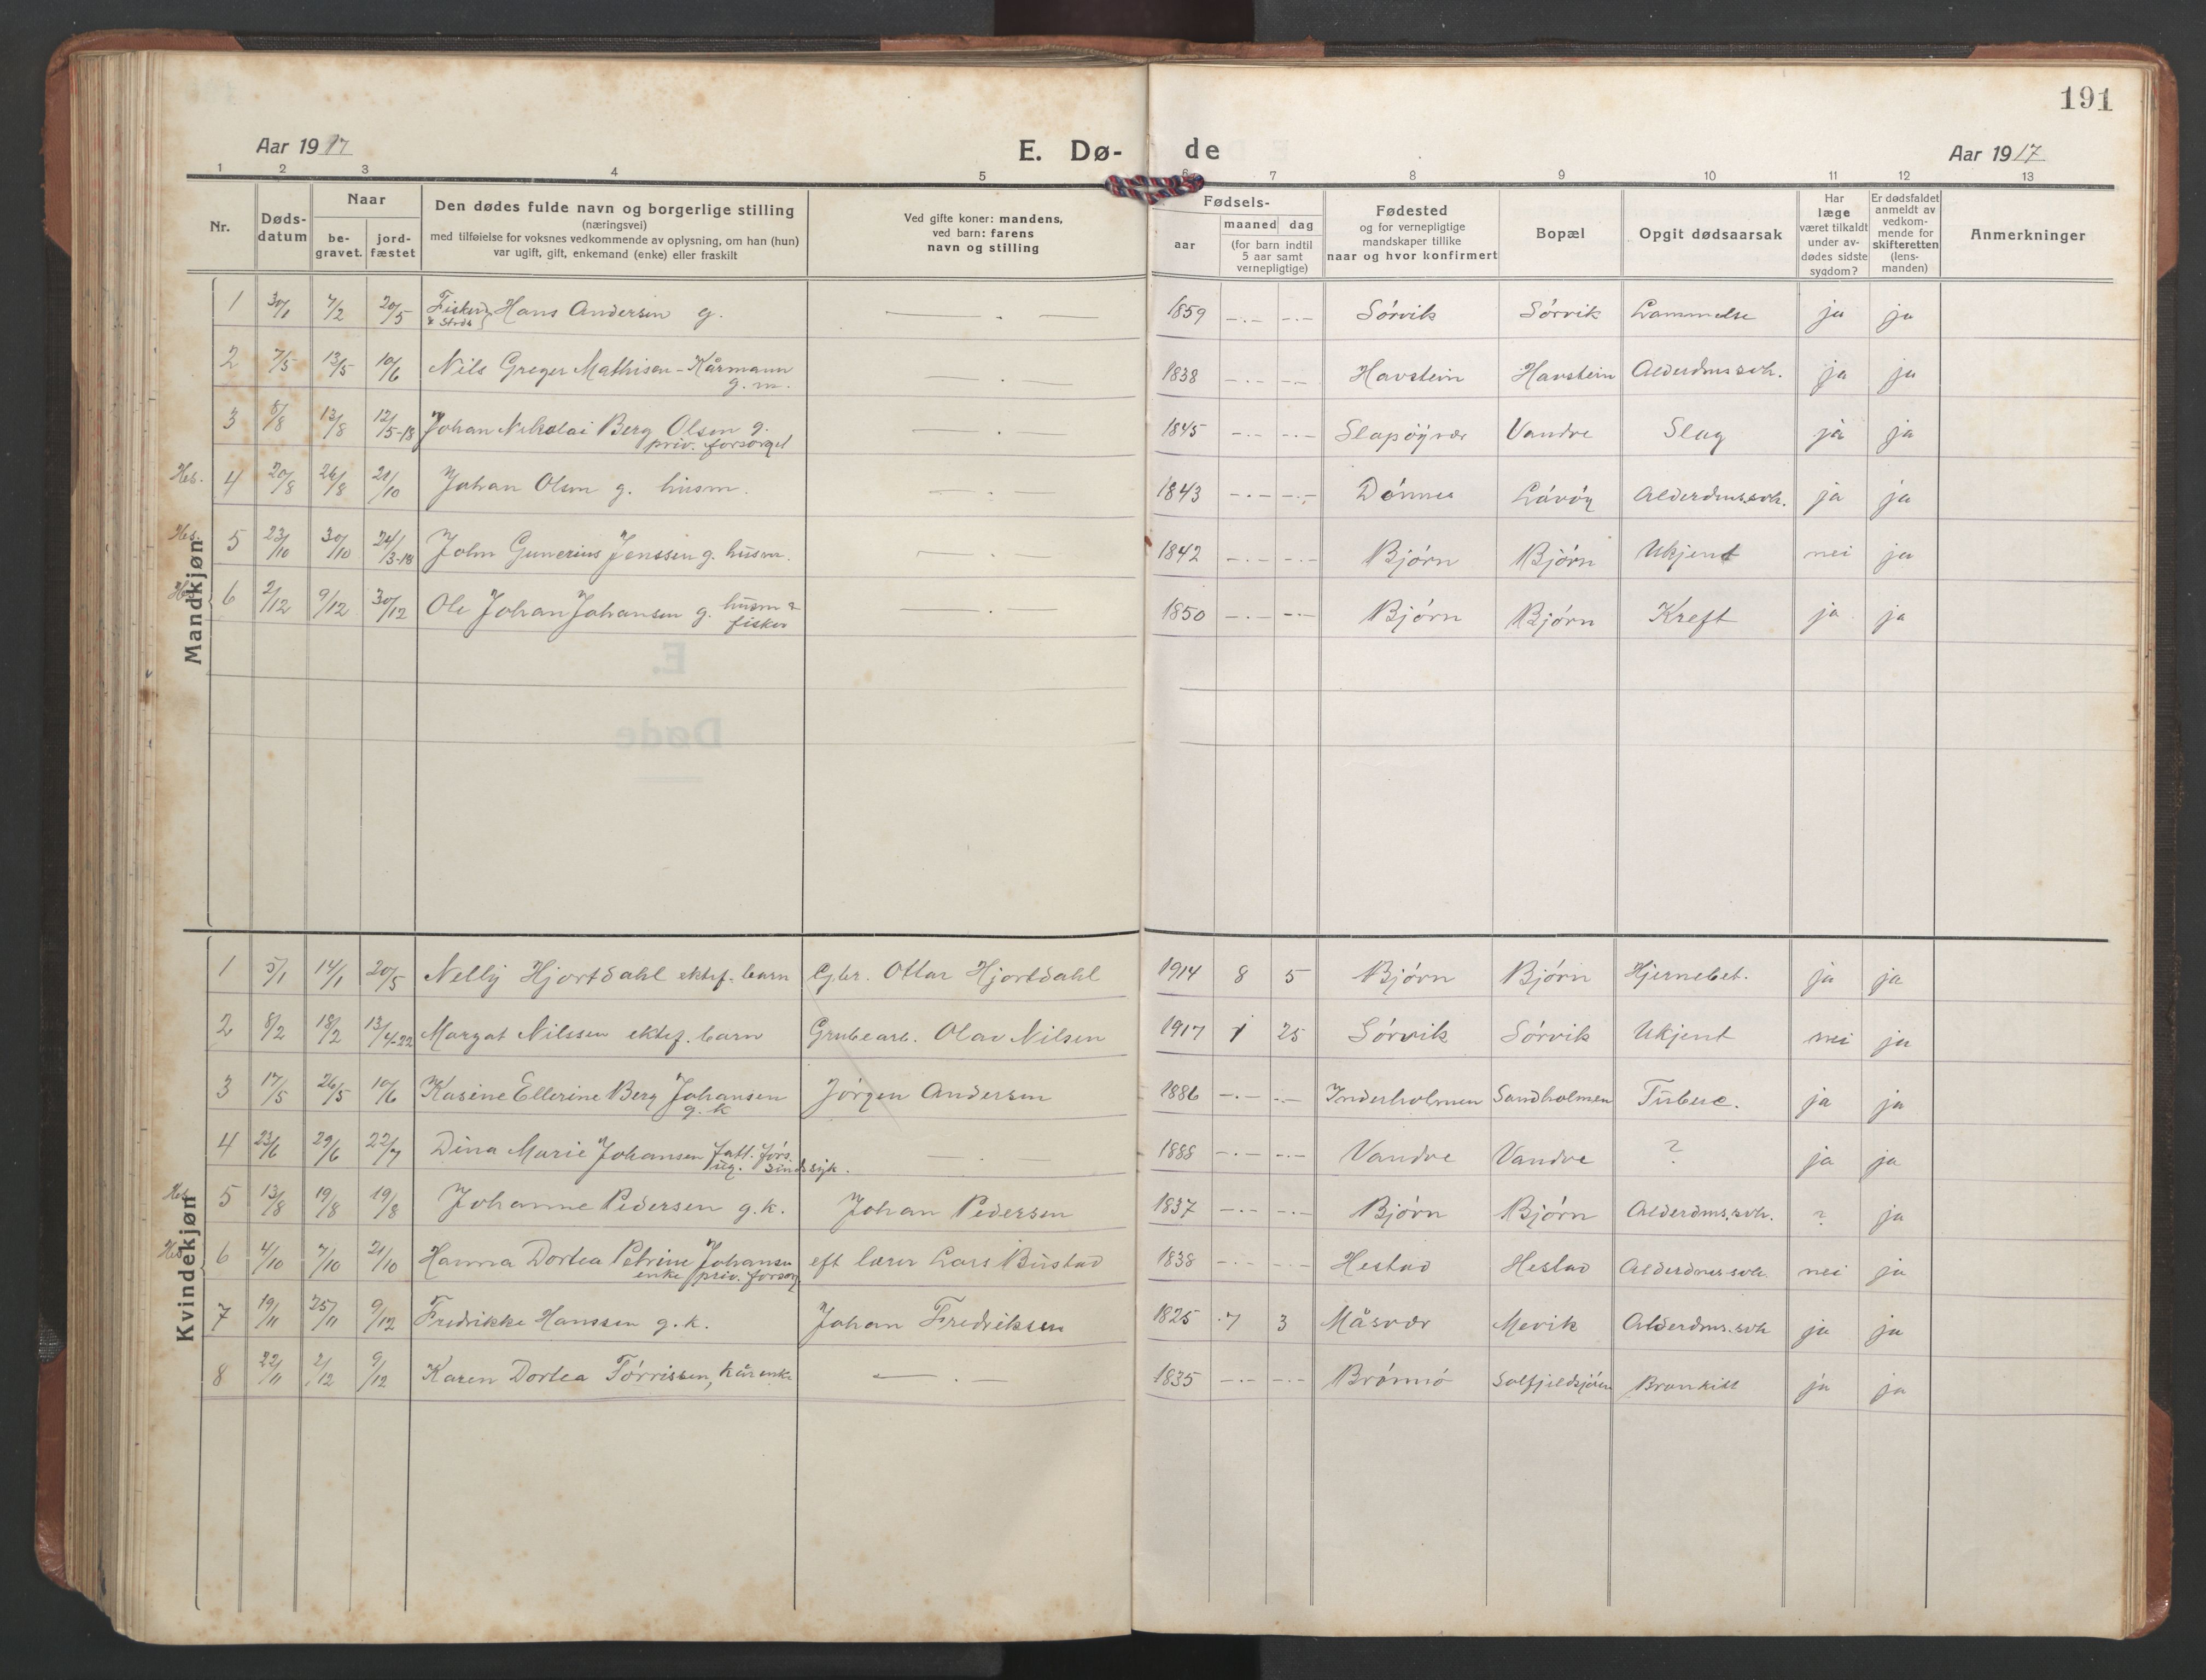 191
Aar 1917 E. Dø- de Aar 1917
1 2 3 4 5 6 7 8 9 10 11 12 13
Nr.
Døds-
datum
Naar
be-
gravet.
jord-
fæstet
Den dødes fulde navn og borgerlige stilling
(næringsvei)
med tilføielse for voksnes vedkommende av oplysning, om han (hun)
var ugift, gift, enkemand (enke) eller fraskilt
Ved gifte koner: mandens,
ved barn: farens
navn og stilling
Fødsels-
aar
maaned dag
(for barn indtil
5 aar samt
vernepligtige)
Fødested
og for vernepligtige
mandskaper tillike
naar og hvor konfirmert
Bopæl
Opgit dødsaarsak
Har
læge
været tilkaldt
under av-
dødes sidste
sygdom?
Er dødsfaldet
anmeldt av
vedkom-
mende for
skifteretten
(lens-
manden)
Anmerkninger
Mandkjøn
1 30/1 7/2 20/5 Fisker Hans Andersen g. — . — 1859 —.— —.— Sörvik Sörvik Lammelse ja ja
2 7/5 13/5 10/6 Nils Greger Mathisen - Kårmann — . — 1838 —.— —.— Havstein Havstein Alderdms.svk. ja ja
g. m.
3 8/8 13/8 12/5-18 Johan Nikolai Berg Olsen g. — . — 1845 —.— —.— Slapöyvær Vandve Slag ja ja
priv. forsørget
Hes. 4 20/8 26/8 21/10 Johan Olsen g. husm. — . — 1843 —.— —.— Dönnes Lövöy Alderdms.svk. ja ja
Hes. 5 23/10 30/10 24/3-18 John Gunerius Jenssen g. husm. — . — 1842 —.— —.— Björn Björn Ukjent nei ja
Hes. 6 2/12 9/12 30/12 Ole Johan Johansen g. husm & — . — 1850 —.— —.— Björn Björn Kreft ja ja
fisker
Kvindekjøn
1 5/1 14/1 20/5 Nelly Hjortdahl ektef. barn Gbr. Ottar Hjortdahl 1914 8 5 Björn Björn Hjernebet. ja ja
2 8/2 18/2 13/4-22 Margat Nilssen ektef. barn Grubearb. Olav Nilsen 1917 1 25 Sörvik Sörvik Ukjent nei ja
3 17/5 26/5 10/6 Kasine Ellerine Berg Johansen Jörgen Andersen 1886 —.— —.— Inderholmen Sandholmen Tuberc. ja ja
g. k
4 23/6 29/6 22/7 Dina Marie Johansen fatt. fors. — 1888 —.— —.— Vandve Vandve ? ja ja
ug. sindssyk.
Hes. 5 13/8 19/8 19/8 Johanne Pedersen g.k. Johan Pedersen 1837 —.— —.— Björn Björn Alderdms.svk. ? ja
Hes. 6 4/10 7/10 21/10 Hanna Dortea Petrine Johansen eft lærer Lars Bustad 1838 —.— —.— Hestad Hestad Alderdmssvk. nei ja
enke priv. forsørg
7 19/11 25/11 9/12 Fredrikke Hanssen g.k. Johan Fredriksen 1825 7 3 Måsvær Mevik Alderdms.svk ja ja
8 22/11 2/12 9/12 Karen Dortea Törrissen, kårenke — . — 1835 —.— —.— Brönnö Solfjeldsjöen Bronkitt ja ja